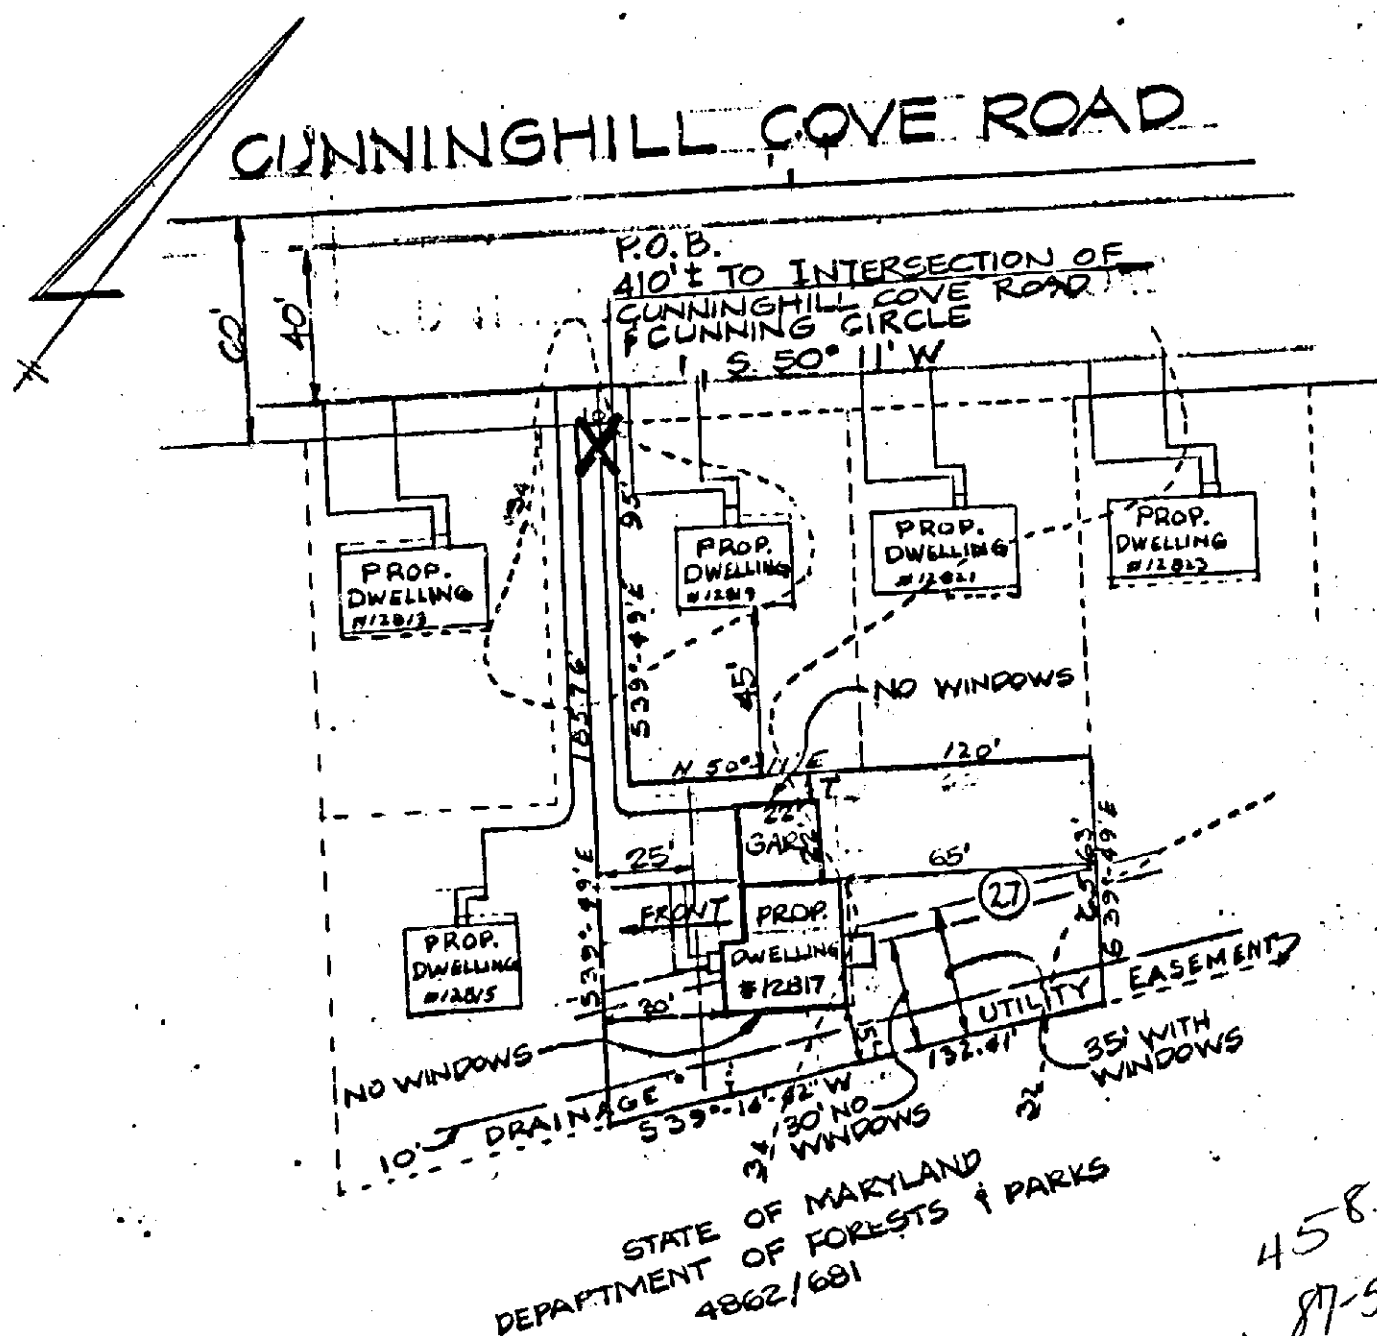 CUNNINGHILL COVE ROAD
60'
40'
P.O.B.
410'± TO INTERSECTION OF
CUNNINGHILL COVE ROAD
& CUNNING CIRCLE
S 50° 11' W
95'
PROP.
DWELLING
#12813
PROP.
DWELLING
#12819
PROP.
DWELLING
#12821
PROP.
DWELLING
#12823
S 39°-49' E
185.76'
45'
NO WINDOWS
N 50°-11' E
120'
22'
GAR.
22'
25'
65'
27
S 39°-49' E
FRONT
PROP.
DWELLING
#12817
PROP.
DWELLING
#12815
S 39°-49' E
30'
15'
UTILITY
EASEMENT
132.41'
35' WITH
WINDOWS
NO WINDOWS
10'
DRAINAGE
S 39°-16'-42" W
30' NO
WINDOWS
34
32
STATE OF MARYLAND
DEPARTMENT OF FORESTS & PARKS
4862/681
458.
87-5